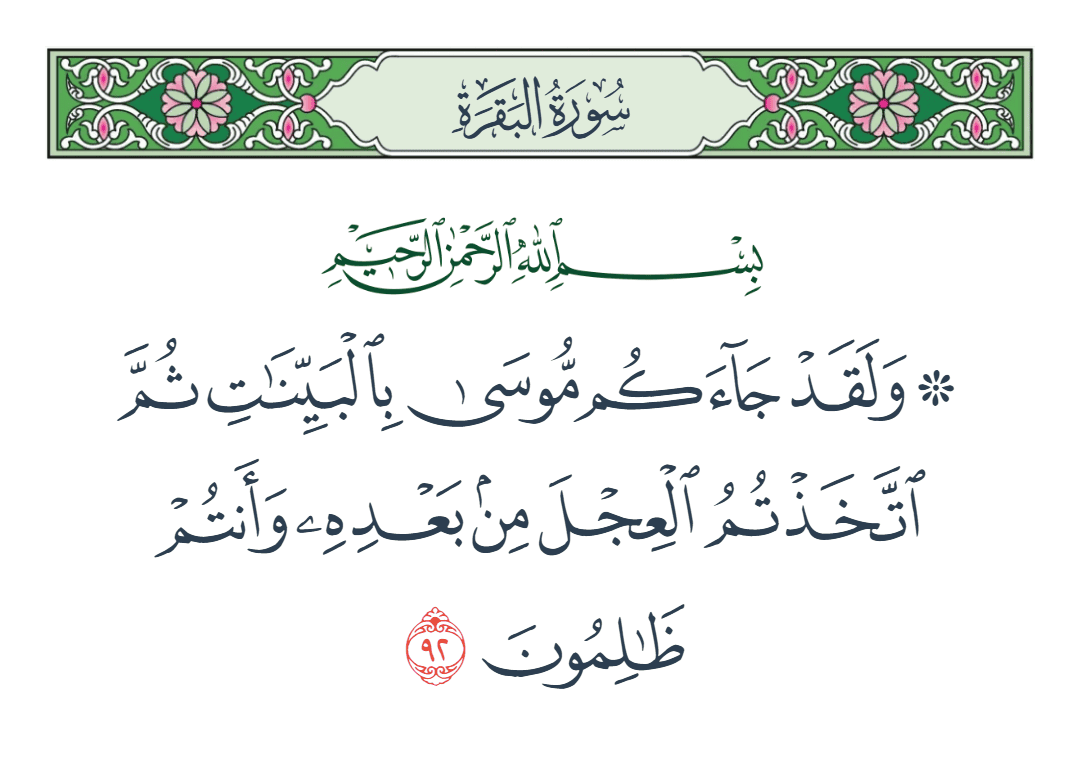 سُورَةُ البَقَرَةِ
بِسْمِ ٱللَّهِ ٱلرَّحْمَٰنِ ٱلرَّحِيمِ
۞ وَلَقَدْ جَآءَكُم مُّوسَىٰ بِٱلْبَيِّنَٰتِ ثُمَّ
ٱتَّخَذْتُمُ ٱلْعِجْلَ مِنۢ بَعْدِهِۦ وَأَنتُمْ
ظَٰلِمُونَ ٩٢